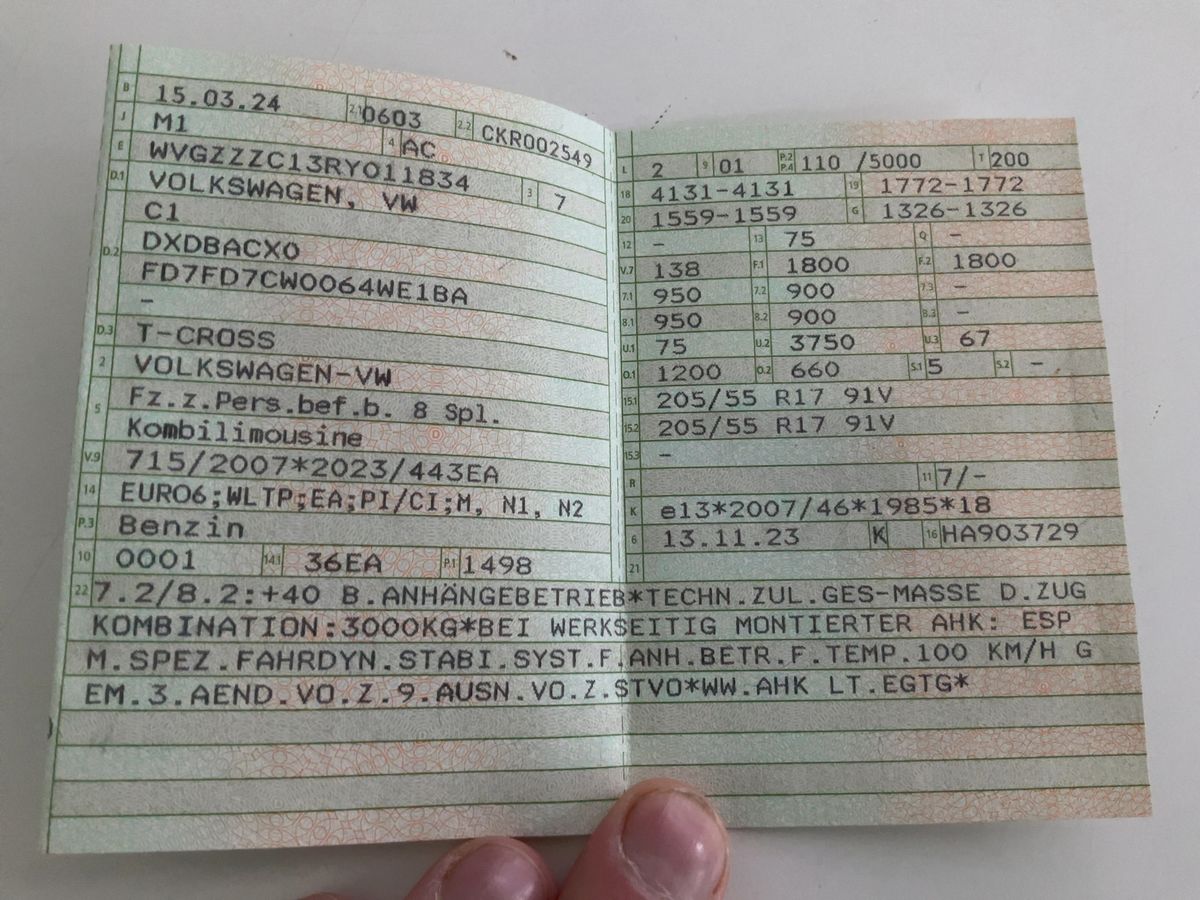 B 15.03.24 2.1 0603 2.2 CKR002549
J M1 4 AC
E WVGZZZC13RY011834 3 7
D.1 VOLKSWAGEN, VW
D.2 C1
DXDBACX0
FD7FD7CW0064WE1BA
-
D.3 T-CROSS
2 VOLKSWAGEN-VW
5 Fz.z.Pers.bef.b. 8 Spl.
Kombilimousine
V.9 715/2007*2023/443EA
14 EURO6;WLTP;EA;PI/CI;M, N1, N2
P.3 Benzin
10 0001 14.1 36EA P.1 1498
L 2 9 01 P.2 P.4 110 /5000 T 200
18 4131-4131 19 1772-1772
20 1559-1559 G 1326-1326
12 - 13 75 Q -
V.7 138 F.1 1800 F.2 1800
7.1 950 7.2 900 7.3 -
8.1 950 8.2 900 8.3 -
U.1 75 U.2 3750 U.3 67
O.1 1200 O.2 660 S.1 5 S.2 -
15.1 205/55 R17 91V
15.2 205/55 R17 91V
15.3 -
R 11 7/-
K e13*2007/46*1985*18
6 13.11.23 K 16 HA903729
21
22 7.2/8.2:+40 B.ANHÄNGEBETRIEB*TECHN.ZUL.GES-MASSE D.ZUG
KOMBINATION:3000KG*BEI WERKSEITIG MONTIERTER AHK: ESP
M.SPEZ.FAHRDYN.STABI.SYST.F.ANH.BETR.F.TEMP.100 KM/H G
EM.3.AEND.VO.Z.9.AUSN.VO.Z.STVO*WW.AHK LT.EGTG*